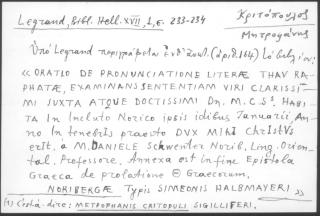 Legrand, Bibl. Hell. XVII, 1, σ. 233-234
Κριτόπουλος
Μητροφάνης
Ὑπὸ Legrand περιγράφεται ἐνθ' ἀνωτ. (ἀριθ. 164) Ιδ
« ORATIO DE PRONUNCIATIONE LITERÆ THAU RA-
PHATÆ, EXAMINANS SENTENTIAM VIRI CLARISSI-
MI JUXTA ATQUE DOCTISSIMI Dn. M. C. S⁽¹⁾. HABI-
TA In Incluto Norico ipsis idibus Januarii, An-
no In tenebris praesto DVX MIhI ChrIstVs
erIt. à M. DANIELE Schwenter Norib. Ling. Orien-
tal. Professore. Annexa est in fine Epistola
Graeca de prolatione Θ Graecorum,
NORIBERGÆ Typis SIMEONIS HALBMAYERI. »
(1) C'està-dire: METROPHANIS CRITOPULI SIGILLIFERI.